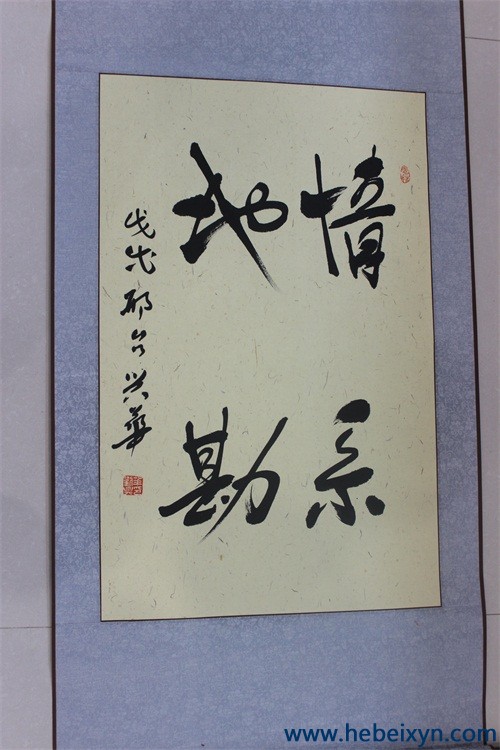 情系
地勘
戊戌邢台兴华
www.hebeixyn.com